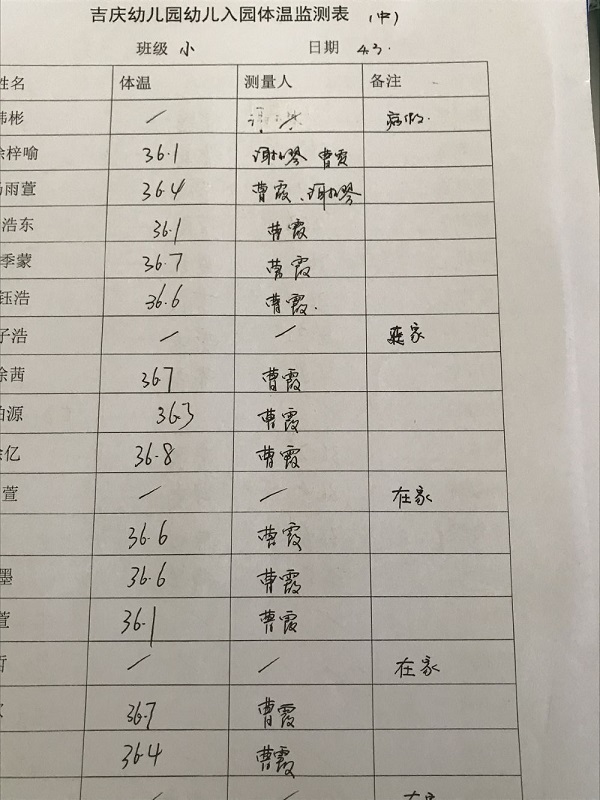 吉庆幼儿园幼儿入园体温监测表 (中)
班级 小 日期 4.3.
姓名 体温 测量人 备注
韩彬 / / 病假.
徐梓喻 36.1 谢小琴 曹霞
杨雨萱 36.4 曹霞、谢小琴
浩东 36.1 曹霞
季蒙 36.7 曹霞
钰浩 36.6 曹霞.
子浩 / / 在家
徐茜 36.7 曹霞
柏源 36.3 曹霞
徐亿 36.8 曹霞
萱 / / 在家
36.6 曹霞
墨 36.6 曹霞
萱 36.1 曹霞
/ / 在家
36.7 曹霞
36.4 曹霞
/ / 在家